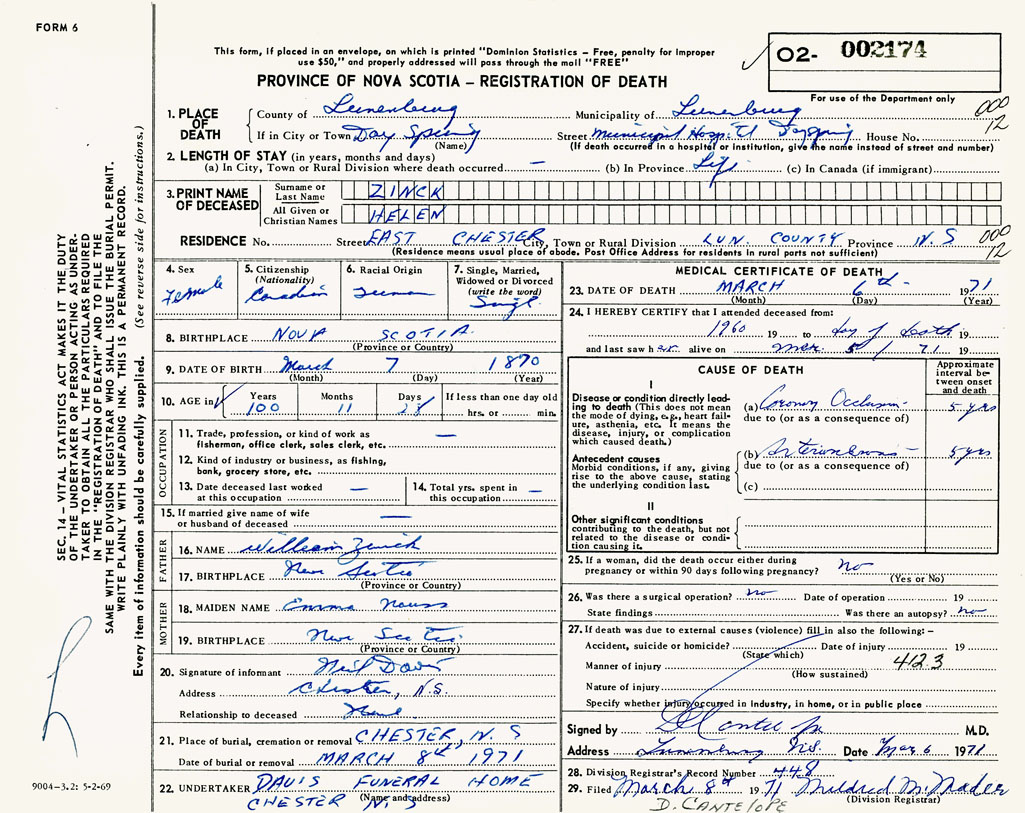 FORM 6
This form, if placed in an envelope, on which is printed "Dominion Statistics – Free, penalty for improper
use $50," and properly addressed will pass through the mail "FREE"
O2- 002174
PROVINCE OF NOVA SCOTIA – REGISTRATION OF DEATH
For use of the Department only
1. PLACE OF DEATH
County of Lunenburg Municipality of Lunenburg 000
If in City or Town Day Spring Street Municipal Hospital House No. 12
(Name) (If death occurred in a hospital or institution, give the name instead of street and number)
2. LENGTH OF STAY (in years, months and days)
(a) In City, Town or Rural Division where death occurred – (b) In Province Life (c) In Canada (if immigrant)
3. PRINT NAME OF DECEASED
Surname or Last Name ZINCK
All Given or Christian Names HELEN
RESIDENCE No. Street EAST CHESTER City, Town or Rural Division LUN. COUNTY Province N.S 000
(Residence means usual place of abode. Post Office Address for residents in rural parts not sufficient) 12
4. Sex
Female
5. Citizenship
(Nationality)
Canadian
6. Racial Origin
German
7. Single, Married,
Widowed or Divorced
(write the word)
Single
8. BIRTHPLACE NOVA SCOTIA
(Province or Country)
9. DATE OF BIRTH March 7 1870
(Month) (Day) (Year)
10. AGE in Years Months Days If less than one day old
100 11 28 hrs. or min.
OCCUPATION
11. Trade, profession, or kind of work as –
fisherman, office clerk, sales clerk, etc.
12. Kind of industry or business, as fishing,
bank, grocery store, etc.
13. Date deceased last worked
at this occupation –
14. Total yrs. spent in
this occupation –
15. If married give name of wife
or husband of deceased –
FATHER
16. NAME William Zinck
17. BIRTHPLACE Nova Scotia
(Province or Country)
MOTHER
18. MAIDEN NAME Emma Nauss
19. BIRTHPLACE Nova Scotia
(Province or Country)
20. Signature of informant Neil Davis
Address Chester, N.S.
Relationship to deceased None
21. Place of burial, cremation or removal CHESTER, N. S
Date of burial or removal MARCH 8th 1971
22. UNDERTAKER DAVIS FUNERAL HOME
(Name and address)
CHESTER N. S
MEDICAL CERTIFICATE OF DEATH
23. DATE OF DEATH MARCH 6th 1971
(Month) (Day) (Year)
24. I HEREBY CERTIFY that I attended deceased from:
1960 19 to day of death 19
and last saw her alive on Mar 5 / 71 19
CAUSE OF DEATH
Approximate
interval be-
tween onset
and death
I
Disease or condition directly lead-
ing to death (This does not mean
the mode of dying, e.g., heart fail-
ure, asthenia, etc. It means the
disease, injury, or complication
which caused death.)
(a) Coronary Occlusion 5 yrs
due to (or as a consequence of)
Antecedent causes
Morbid conditions, if any, giving
rise to the above cause, stating
the underlying condition last.
(b) 5 yrs
due to (or as a consequence of)
(c)
II
Other significant conditions
contributing to the death, but not
related to the disease or condi-
tion causing it.
25. If a woman, did the death occur either during
pregnancy or within 90 days following pregnancy? no
(Yes or No)
26. Was there a surgical operation? no Date of operation 19
State findings Was there an autopsy? no
27. If death was due to external causes (violence) fill in also the following: –
Accident, suicide or homicide? Date of injury 19
(State which)
Manner of injury 412.3
(How sustained)
Nature of injury
Specify whether injury occurred in industry, in home, or in public place
Signed by M.D.
Address Lunenburg N.S. Date Mar 6 1971
28. Division Registrar's Record Number 448
29. Filed March 8th 1971 Mildred M. Mader
(Division Registrar)
D. CANTELOPE
SEC. 14 – VITAL STATISTICS ACT MAKES IT THE DUTY
OF THE UNDERTAKER OR PERSON ACTING AS UNDER-
TAKER TO OBTAIN ALL THE PARTICULARS REQUIRED
IN THE "REGISTRATION OF DEATH" AND TO FILE THE
SAME WITH THE DIVISION REGISTRAR WHO SHALL ISSUE THE BURIAL PERMIT.
WRITE PLAINLY WITH UNFADING INK. THIS IS A PERMANENT RECORD.
Every item of information should be carefully supplied. (See reverse side for instructions.)
9004-3.2: 5-2-69